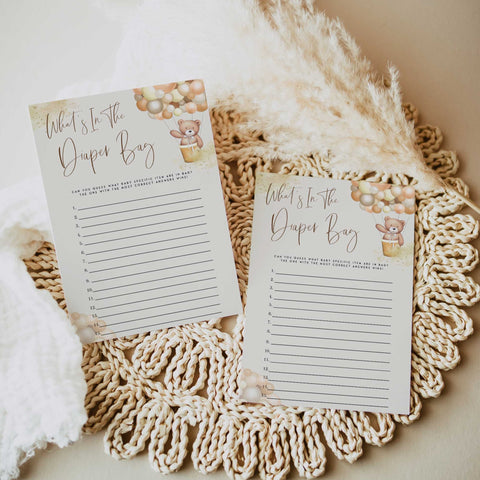 What's In The
Diaper Bag
CAN YOU GUESS WHAT BABY SPECIFIC ITEM ARE IN BAG?
THE ONE WITH THE MOST CORRECT ANSWERS WINS!
1.
2.
3.
4.
5.
6.
7.
8.
9.
10.
11.
12.
What's In The
Diaper Bag
CAN YOU GUESS WHAT BABY SPECIFIC ITEM ARE IN BAG?
THE ONE WITH THE MOST CORRECT ANSWERS WINS!
1.
2.
3.
4.
5.
6.
7.
8.
9.
10.
11.
12.